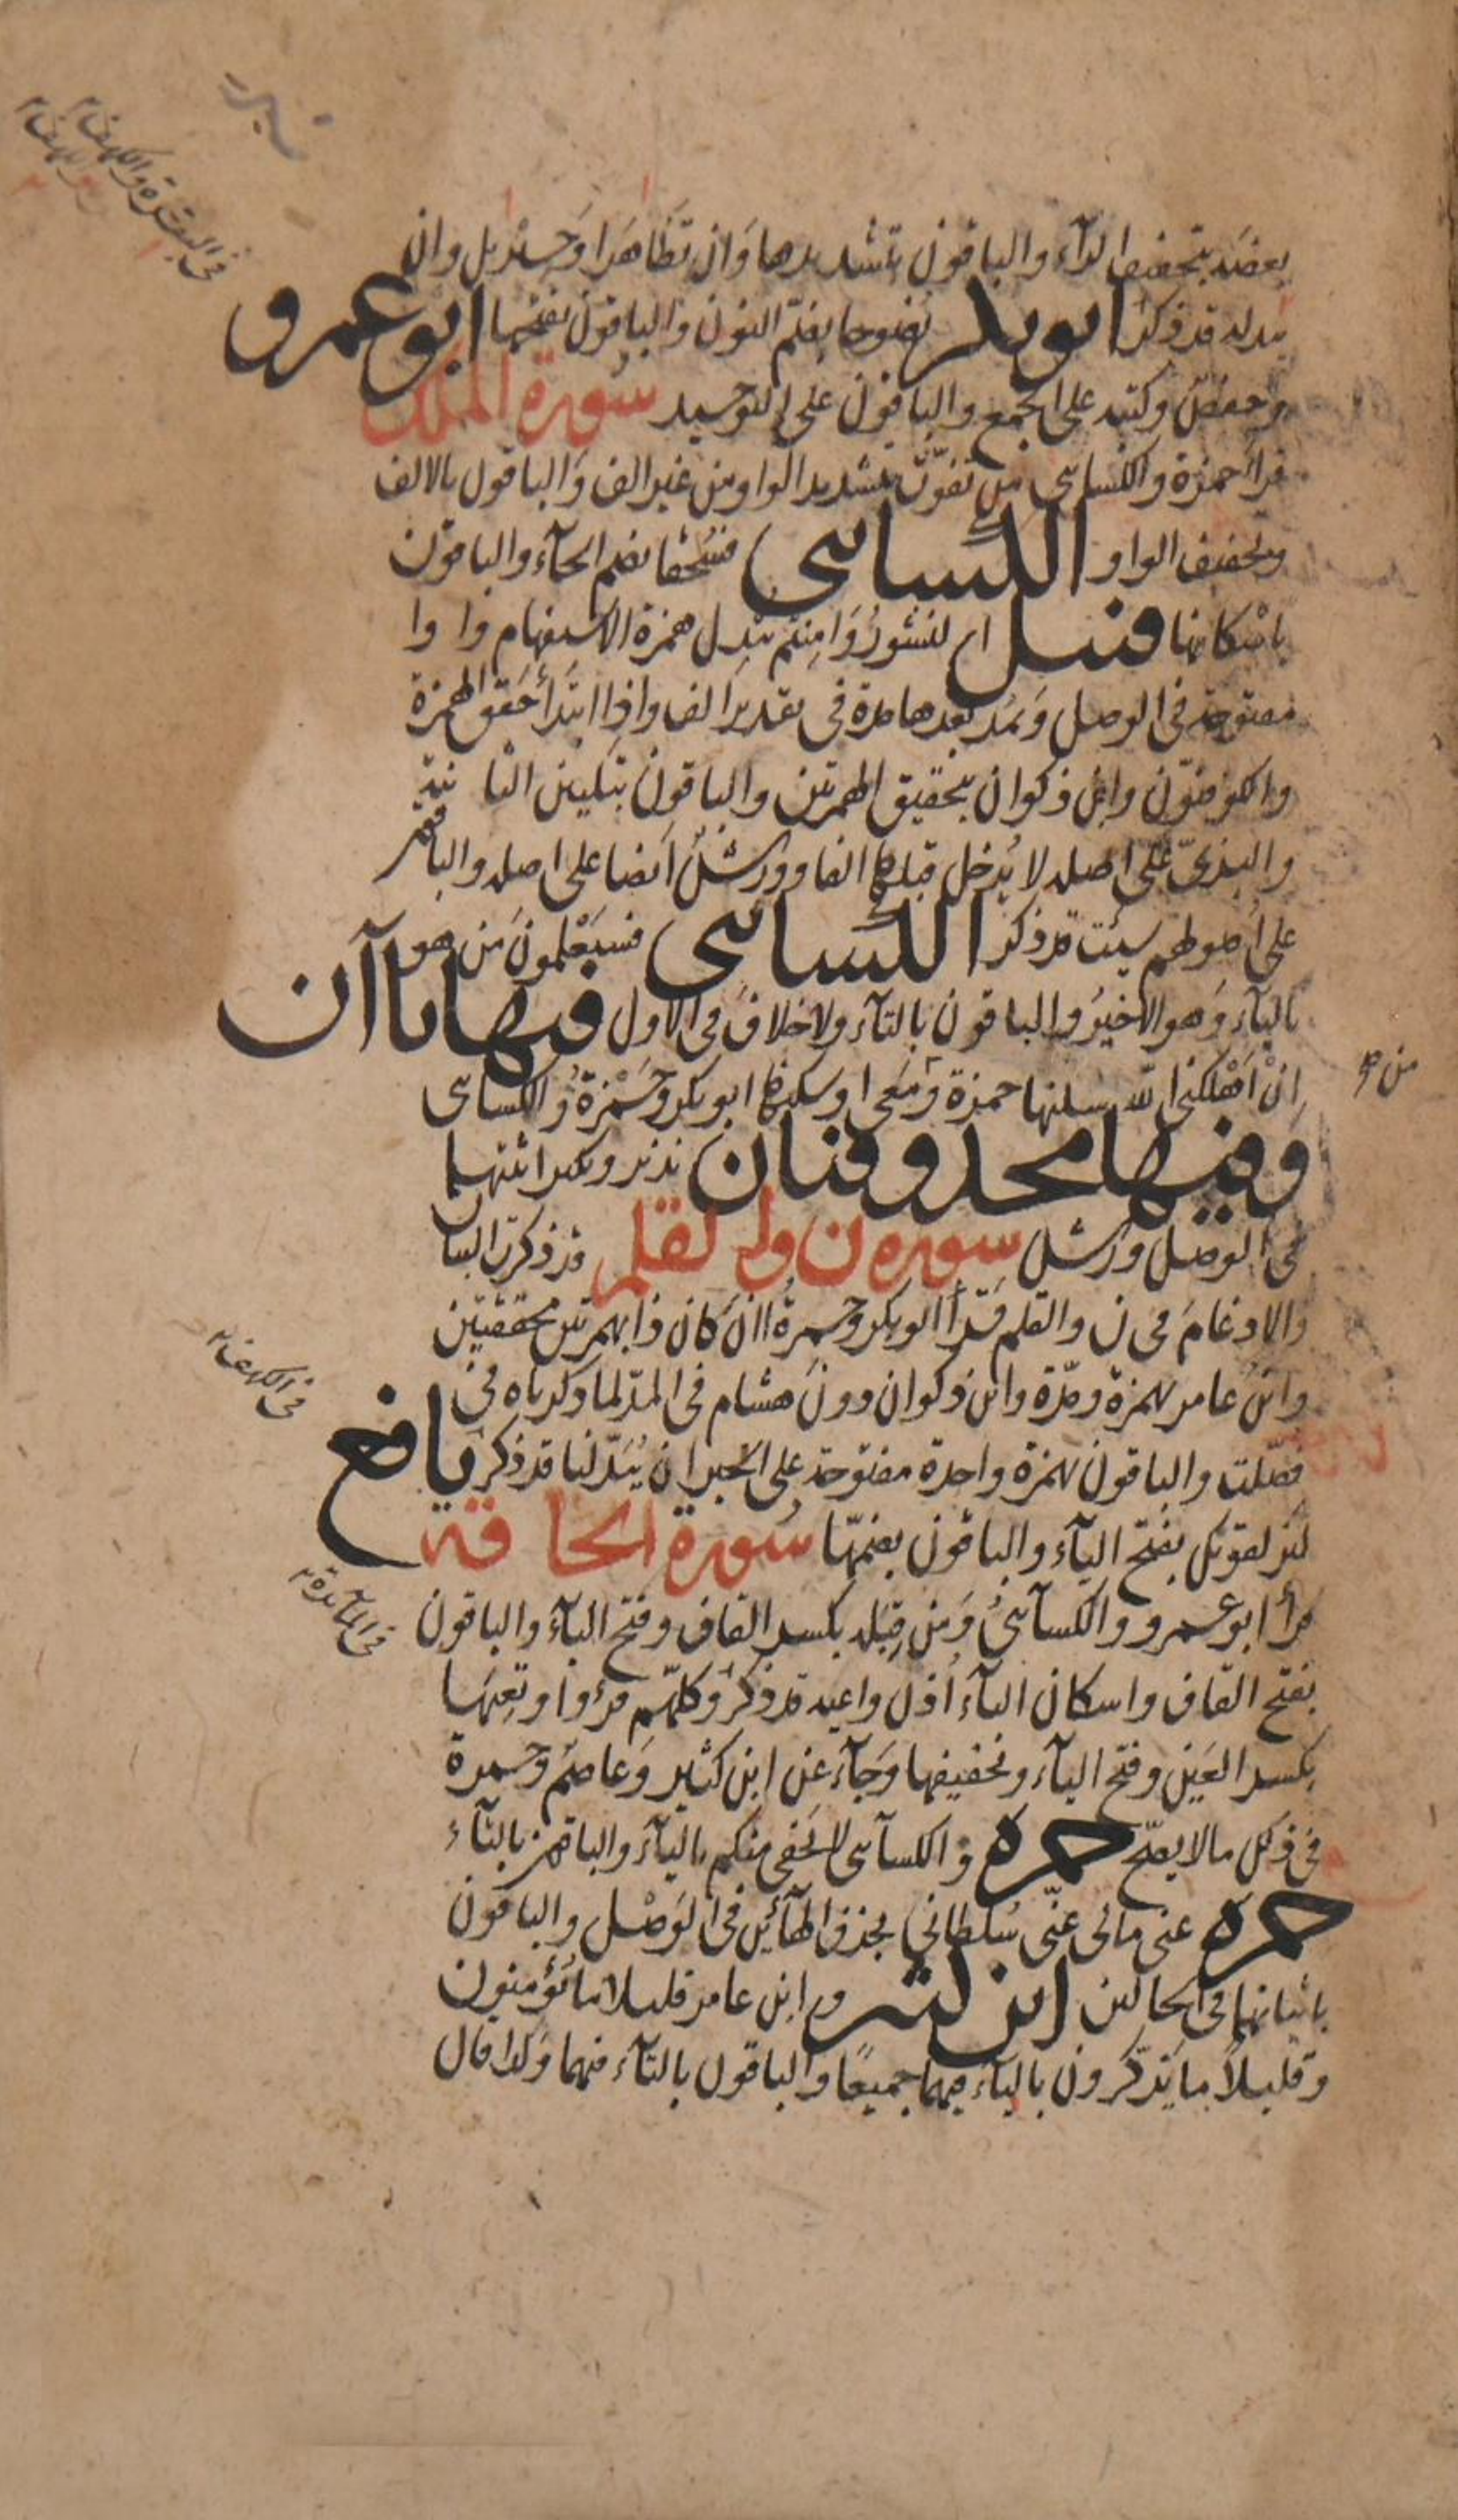 بعضه بتخفيف الرآء والباقون بتشديدها وَان تظَاهَرا وَجبْريل وان
يبدله قد ذكرا ابو بكر نصُوحا بضمّ النون والباقون بفتحها ابو عمرو
وحفصٌ وكتبه على الجمع والباقون على التوحيد سُورة الملك
قرأ حمزة والكسائى من تفوّت بتشديد الواو من غير الف وَالباقون بالالف
وتخفيف الواو الكسائى فسُحُقا بضم الحآء والباقون
باسْكانها قنبل النشورُ وَامِنتم يبدل همزة الاستفهام واوا
مفتوحة فى الوصل وَيمُد بعدها مدة فى تقدير الف واذا ابتدَأ حَقق الهمزة
والكوفيّون وابن ذكوان بتحقيق الهمزتين والباقون بتليين الثانية
والبزىّ على اصله لا يُدخل قبلها الفا وورشٌ ايضا على اصله والباقون
على اصُولهم سيئت قد ذكر الكسائى فسَيَعْلمونَ مَن هو
باليآء وَهو الاخيرُ والباقون بالتآء ولا خلافَ فى الاول فيها ياآن
اِنْ اَهْلكنى اللّه سكنها حمزة وَمَعى اوسكنها ابو بكر وحَمْزةُ والكسائى
وفيها محذوفتان نذير ونكير اثبتهما
فى الوصل ورش سورة ن والقلم قد ذكرت البيان
والادغامَ فى ن والقلم قرأ ابو بكر وحمزةُ اان كَان ذا بهمزتين محققتين
وابنُ عامر بهمزة ومدّة وابن ذكوان دون هشام فى المدّ لما ذكرناه فى
فصّلت والباقون بهمزة واحدة مفتوحة على الخبر ان يُبَدّلنا قد ذكر نافع
ليزلقونك بفتح اليآء والباقون بضمّها سُورة الحاقة
قرأ ابو عمرو والكسآئىُ وَمَن قِبَله بكسر القاف وفتح البآء والباقون
بفتح القاف واسكان البآء اُذن واعيه قد ذكر وكلهم قرءوا وتَعِيَها
بكسر العَين وفتح اليآء وتخفيفها وَجَآء عن ابن كثير وَعاصم وحمزة
فى ذلك مالا يصحّ حمزة والكسآئى لا يَخفى منكم باليآء والباقون بالتآء
حمزة عنى مالى عنّى سُلطانى بحذف الهآئين فى الوَصْل والباقون
باثباتهما فى الحالين ابن كثير وابن عامر قليلا ما يُؤمنون
وقليلاً ما يَذّكرون باليآء فيهما جميعًا والباقون بالتآء فيهما وَكذا قال
فى البقرة والكهف
من
فى الكهف
فى المآئدة